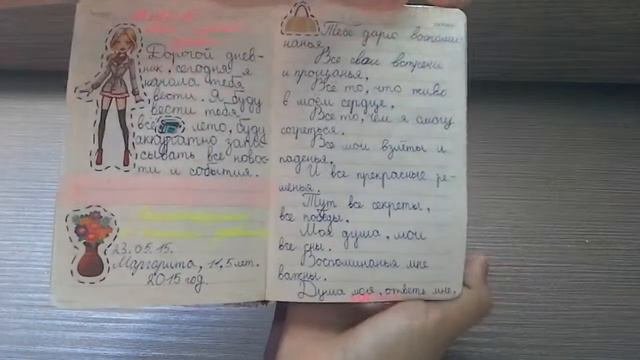 Дорогой днев-
ник, сегодня я
начала тебя
вести. Я буду
вести тебя
всё лето, буду
аккуратно запи-
сывать все новос-
ти и события.
23.05.15.
Маргарита, 11,5 лет.
2015 год.
Тебе дарю воспоми-
нанья.
Все свои встречи
и прощанья.
Все то, что живо
в моём сердце.
Все то, чем я смогу
согреться.
Все мои взлёты и
паденья.
И все прекрасные ре-
шенья.
Тут все секреты,
все победы.
Моя душа, мои
все сны.
Воспоминанья мне
важны.
Душа моя, ответь мне.